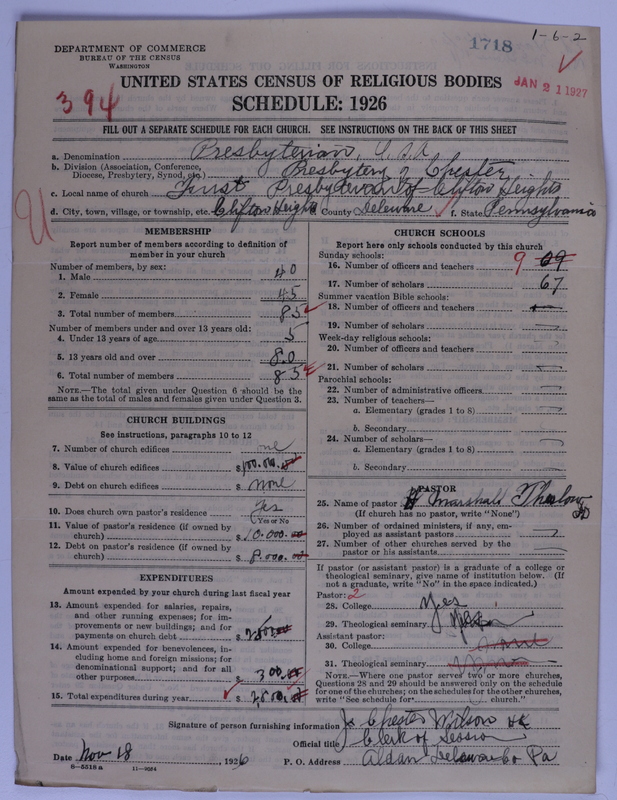 1718
1-6-2
DEPARTMENT OF COMMERCE
BUREAU OF THE CENSUS
WASHINGTON
UNITED STATES CENSUS OF RELIGIOUS BODIES
JAN 21 1927
394
SCHEDULE: 1926
FILL OUT A SEPARATE SCHEDULE FOR EACH CHURCH. SEE INSTRUCTIONS ON THE BACK OF THIS SHEET
a. Denomination Presbyterian, U.S.A
b. Division (Association, Conference, Diocese, Presbytery, Synod, etc.) Presbytery of Chester
c. Local name of church First Presbyterian of Clifton Heights
d. City, town, village, or township, etc. Clifton Heights County Delaware f. State Pennsylvania
MEMBERSHIP
Report number of members according to definition of member in your church
Number of members, by sex:
1. Male 40
2. Female 45
3. Total number of members 85
Number of members under and over 13 years old:
4. Under 13 years of age 5
5. 13 years old and over 80
6. Total number of members 85
NOTE.—The total given under Question 6 should be the same as the total of males and females given under Question 3.
CHURCH BUILDINGS
See instructions, paragraphs 10 to 12
7. Number of church edifices one
8. Value of church edifices $
9. Debt on church edifices $ none
10. Does church own pastor's residence yes
(Yes or No)
11. Value of pastor's residence (if owned by church) $ 10.000.00
12. Debt on pastor's residence (if owned by church) $ 8.000.00
EXPENDITURES
Amount expended by your church during last fiscal year
13. Amount expended for salaries, repairs, and other running expenses; for improvements or new buildings; and for payments on church debt $
14. Amount expended for benevolences, including home and foreign missions; for denominational support; and for all other purposes $ 300.00
15. Total expenditures during year $
CHURCH SCHOOLS
Report here only schools conducted by this church
Sunday schools:
16. Number of officers and teachers 9
17. Number of scholars 67
Summer vacation Bible schools:
18. Number of officers and teachers
19. Number of scholars
Week-day religious schools:
20. Number of officers and teachers
21. Number of scholars
Parochial schools:
22. Number of administrative officers
23. Number of teachers—
a. Elementary (grades 1 to 8)
b. Secondary
24. Number of scholars—
a. Elementary (grades 1 to 8)
b. Secondary
PASTOR
25. Name of pastor Marshall
(If church has no pastor, write "None")
26. Number of ordained ministers, if any, employed as assistant pastors
27. Number of other churches served by the pastor or his assistants
If pastor (or assistant pastor) is a graduate of a college or theological seminary, give name of institution below. (If not a graduate, write "No" in the space indicated.)
Pastor: 2
28. College yes
29. Theological seminary yes
Assistant pastor:
30. College none
31. Theological seminary none
NOTE.—Where one pastor serves two or more churches, Questions 28 and 29 should be answered only on the schedule for one of the churches; on the schedules for the other churches, write "See schedule for church."
Signature of person furnishing information Chester Wilson
Official title Clerk of Session
Date Nov 18, 1926 P. O. Address Aldan Delaware Co Pa
8-5518 a 11-9054